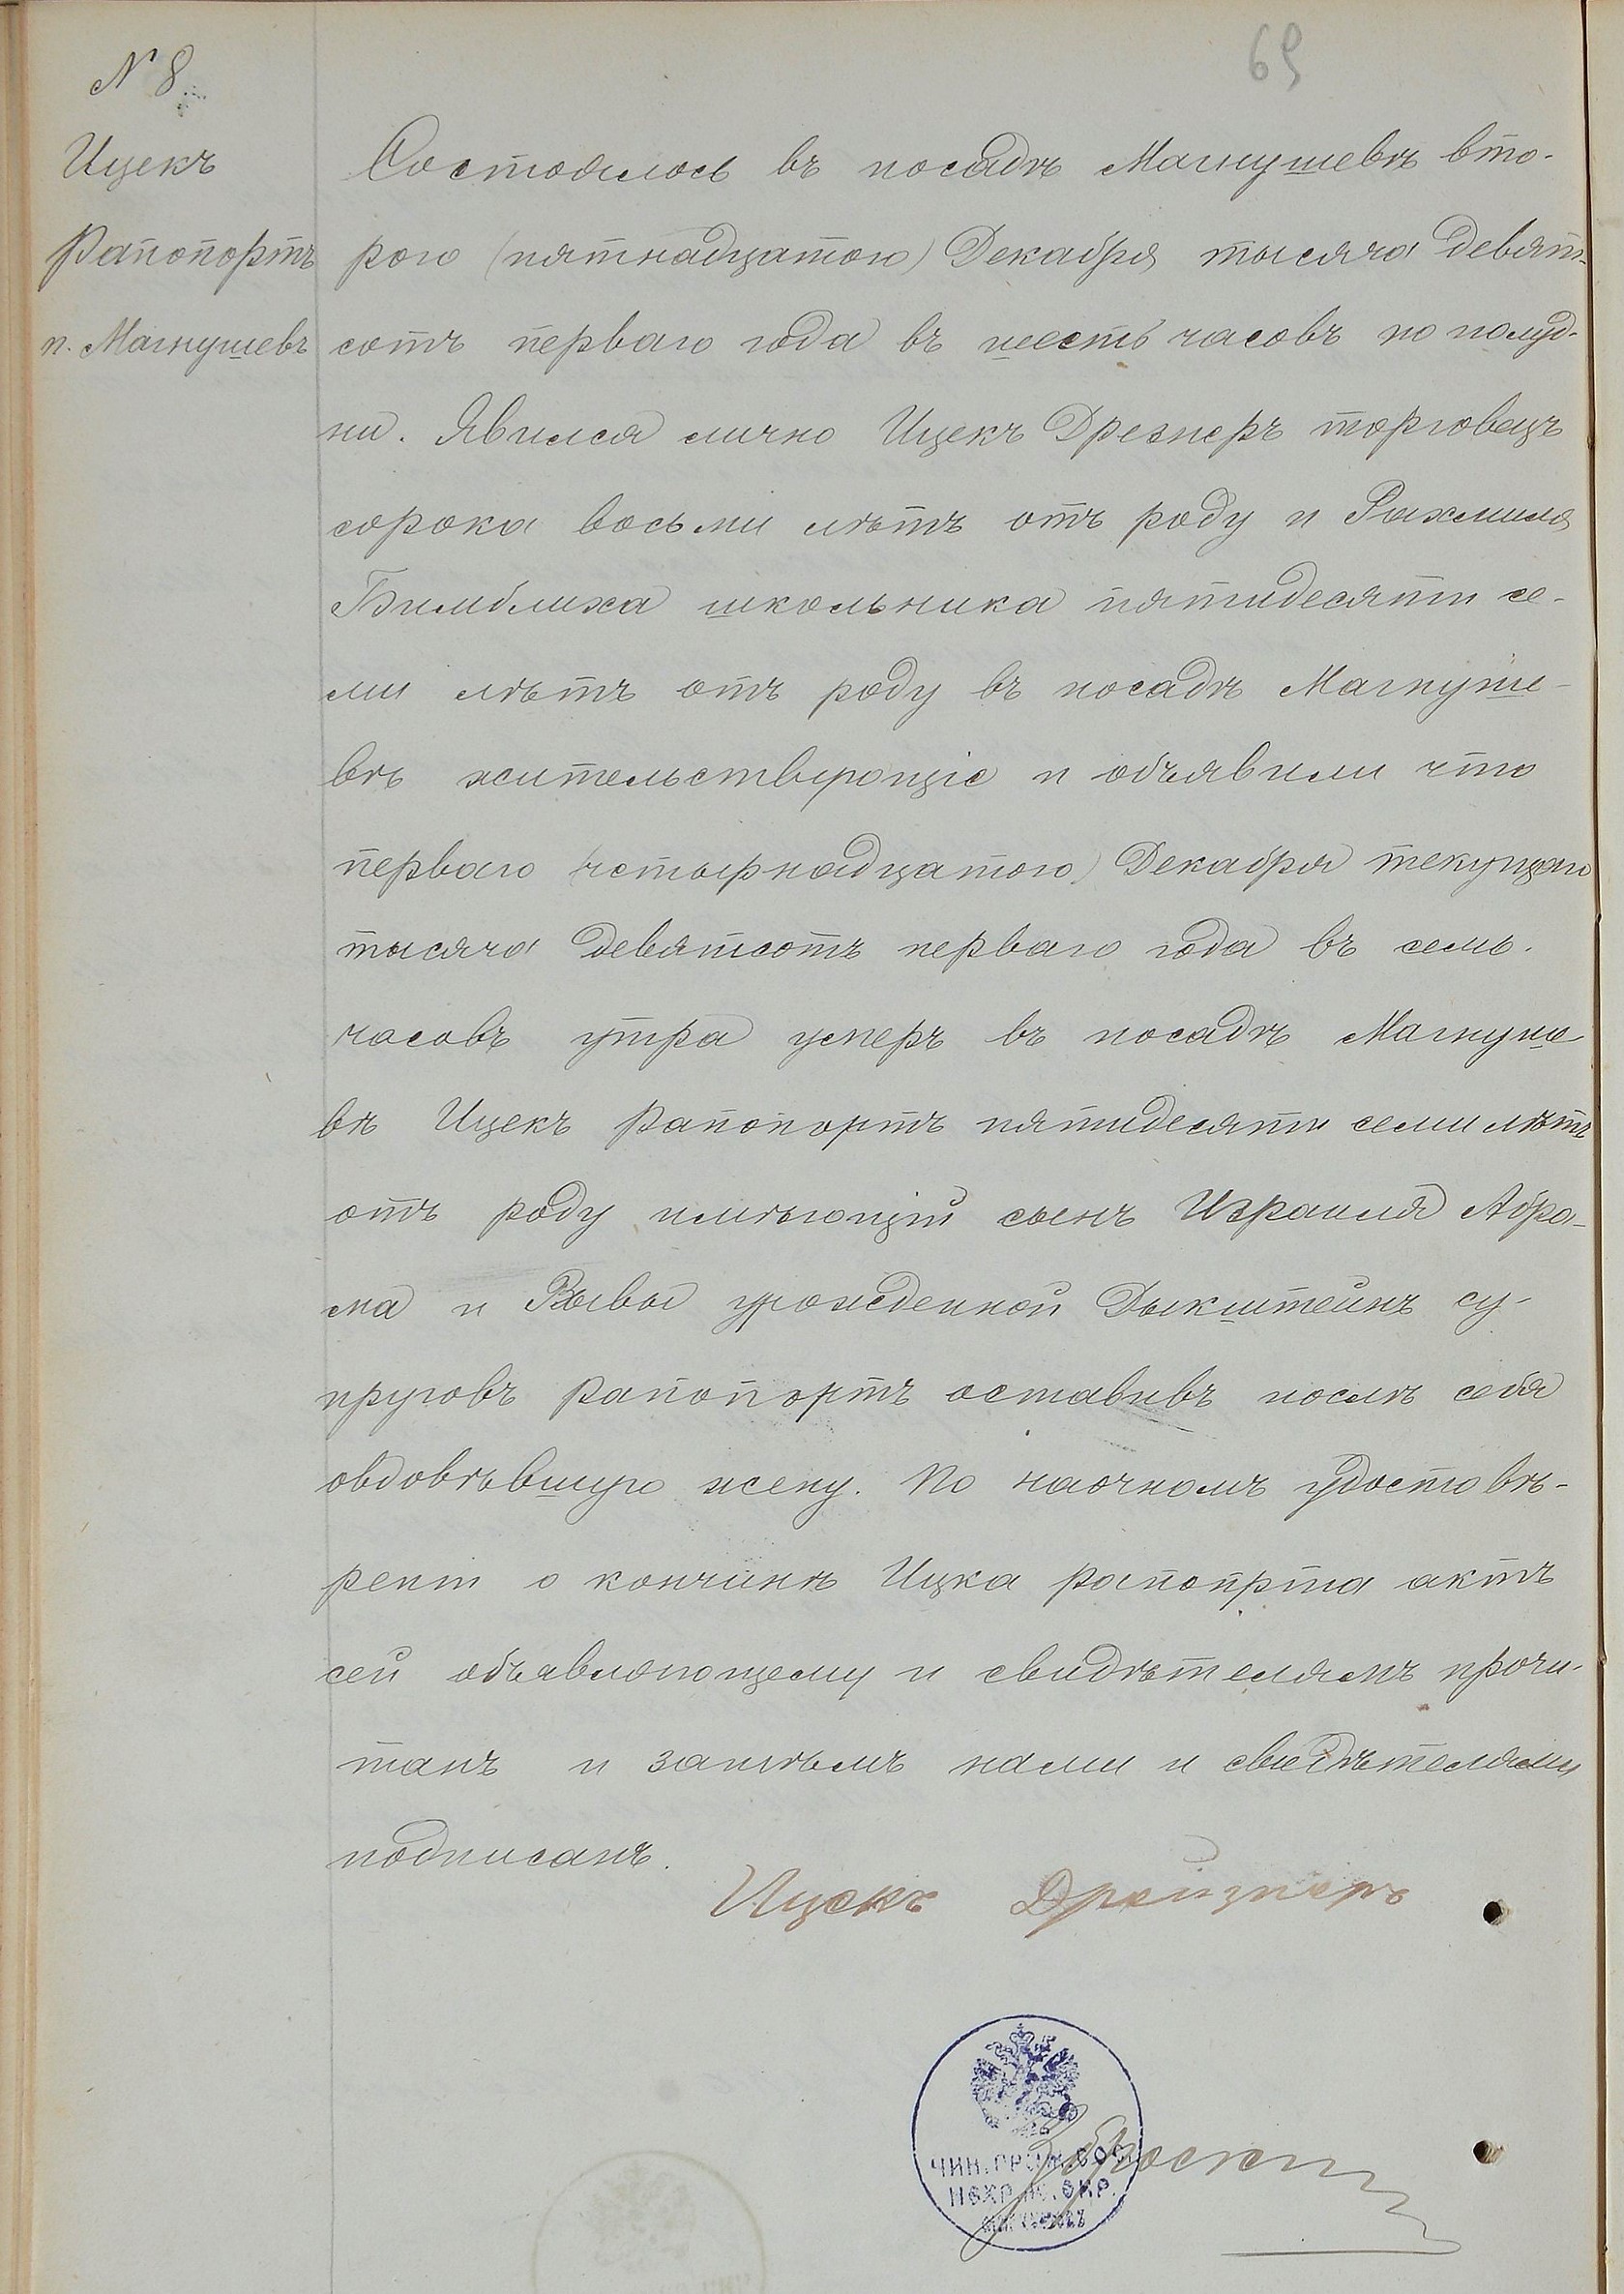 69
№ 8
Ицекъ
Рапопортъ
п. Магнушевъ
Состоялось въ посадѣ Магнушевѣ вто-
рого (пятнадцатого) Декабря тысяча девять-
сотъ перваго года въ шесть часовъ по полуд-
ни. Явился лично Ицекъ Дрезнеръ торговецъ
сорока восьми лѣтъ отъ роду и Рахмиля
Бимблиха школьника пятидесяти се-
ми лѣтъ отъ роду въ посадѣ Магнуше-
вѣ жительствующіе и объявили что
перваго (четырнадцатого) Декабря текущаго
тысяча девятсотъ перваго года въ семь
часовъ утра умеръ въ посадѣ Магнуше
вѣ Ицекъ Рапопортъ пятидесяти семи лѣтъ
отъ роду имѣющій сынъ Израиля Абра-
ма и Рывы урожденной Дыкштейнъ су-
пруговъ Рапопортъ оставивъ послѣ себя
овдовѣвшую жену. По наочномъ удостовѣ-
рени о кончинѣ Ицка Рапопрта актъ
сей объявляющему и свидѣтелямъ прочи-
танъ и затѣмъ нами и свидѣтелями
подписанъ.
Ицекъ Дрейзнеръ
ЧИН. ГРАЖ. СОС.
НЕХР. ИС. ОКР.